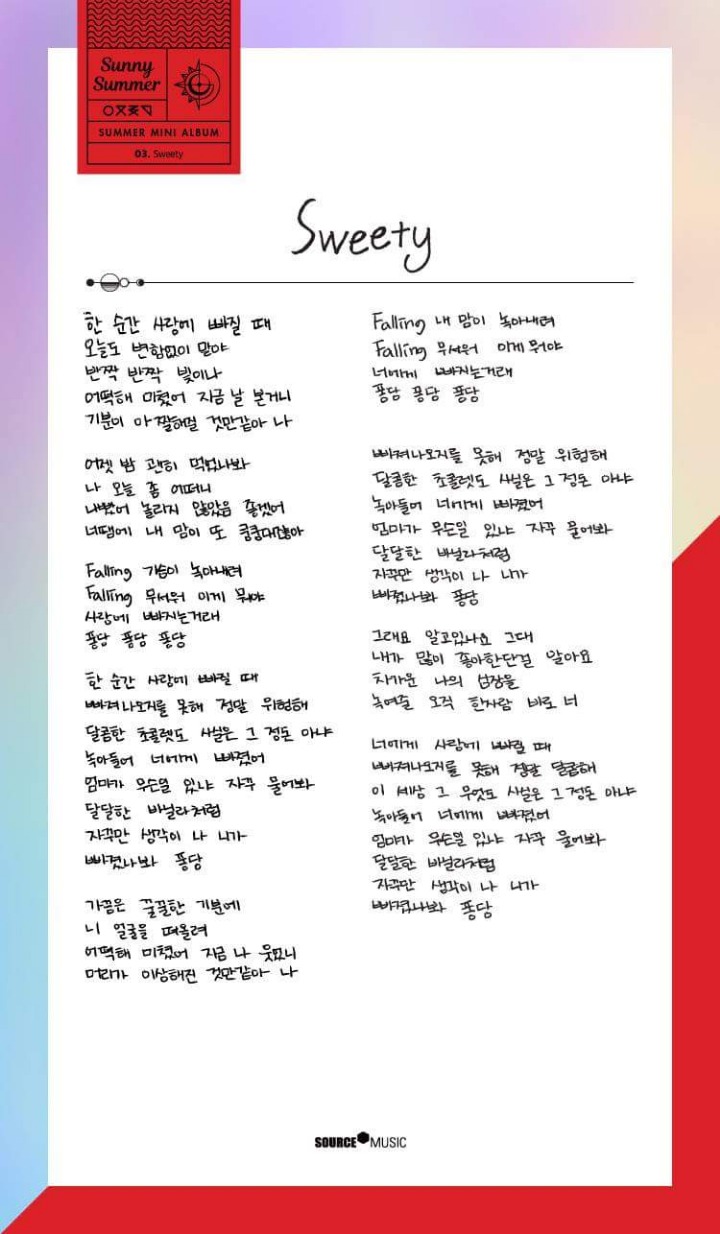 Sunny
Summer
SUMMER MINI ALBUM
03. Sweety
Sweety
한 순간 사랑에 빠질 때
오늘도 변함없이 말야
반짝 반짝 빛이나
어떡해 미쳤어 지금 날 본거니
기분이 아찔해질 것만같아 나
어젯 밤 괜히 먹었나봐
나 오늘 좀 어떠니
내뱉어 놀라지 않았음 좋겠어
너땜에 내 맘이 또 쿵쿵대잖아
Falling 가슴이 녹아내려
Falling 무서워 이게 뭐야
사랑에 빠지는거래
퐁당 퐁당 퐁당
한 순간 사랑에 빠질 때
빠져나오지를 못해 정말 위험해
달콤한 초콜렛도 사실은 그 정돈 아냐
녹아들어 너에게 빠졌어
엄마가 무슨일 있냐 자꾸 물어봐
달달한 바닐라처럼
자꾸만 생각이 나 니가
빠졌나봐 퐁당
가끔은 꿀꿀한 기분에
니 얼굴을 떠올려
어떡해 미쳤어 지금 나 웃었니
머리가 이상해진 것만같아 나
Falling 내 맘이 녹아내려
Falling 무서워 이게 뭐야
너에게 빠지는거래
퐁당 퐁당 퐁당
빠져나오지를 못해 정말 위험해
달콤한 초콜렛도 사실은 그 정돈 아냐
녹아들어 너에게 빠졌어
엄마가 무슨일 있냐 자꾸 물어봐
달달한 바닐라처럼
자꾸만 생각이 나 니가
빠졌나봐 퐁당
그래요 알고있나요 그대
내가 많이 좋아한단걸 알아요
차가운 나의 심장을
녹여줄 오직 한사람 바로 너
너에게 사랑에 빠질 때
빠져나오지를 못해 정말 달콤해
이 세상 그 무엇도 사실은 그 정돈 아냐
녹아들어 너에게 빠졌어
엄마가 무슨일 있냐 자꾸 물어봐
달달한 바닐라처럼
자꾸만 생각이 나 니가
빠졌나봐 퐁당
SOURCE MUSIC